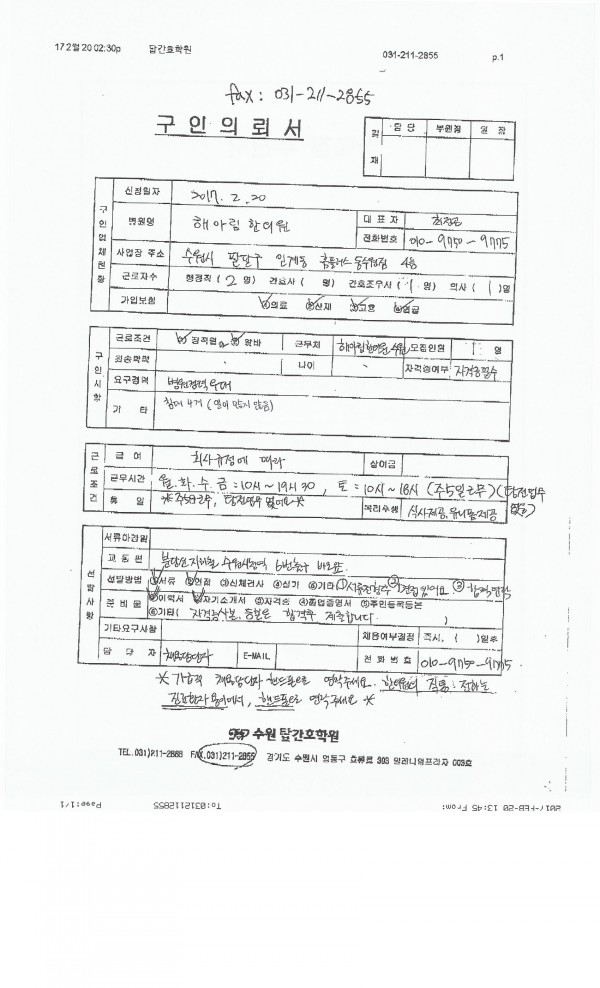 17 2월 20 02:30p 탑간호학원 031-211-2855 p.1
fax : 031-211-2855
구 인 의 뢰 서
결 재 담 당 부원장 원 장
구인업체현황
신청일자 2017. 2. 20
병원명 해아림 한의원 대 표 자
전화번호 010-9750-9775
사업장 주소 수원시 팔달구 인계동 홈플러스 동수원점 4층
근로자수 행정직 ( 2 명) 간호사 ( 명) 간호조무사 ( 1 명) 의사 ( 1 )명
가입보험 ㉮의료 ㉯산재 ㉰고용 ㉱연금
구인사항
근로조건 ㉮정직원 ㉯알바 근무처 해아림한의원 수원 모집인원 1 명
최종학력 나이 자격증여부 자격증필수
요구경력 병원경력 우대
기 타 침대 4개 (일이 많지 않음)
근로조건
급 여 회사규정에 따라 상여금
근무시간 월.화.수.금 : 10시~19시 30, 토 : 10시~18시 (주5일근무) (당직업무 없음)
휴 일 *주5일근무, 당직업무 없어요* 복리후생 식사제공, 유니폼제공
선발사항
서류마감일
교 통 편 분당선 지하철 수원시청역 6번출구 바로앞
선발방법 ①서류 ②면접 ③신체검사 ④실기 ⑥기타 ① 서류전형후 ② 면접있어요 ③ 합격연락
준 비 물 ①이력서 ②자기소개서 ③자격증 ④졸업증명서 ⑤주민등록등본
⑥기타( 자격증사본, 등본은 합격후 제출합니다 )
기타요구사항 채용여부결정 즉시, ( )일후
담 당 자 채용담당자 E-MAIL 전 화 번 호 010-9750-9775
* 가급적 채용담당자 핸드폰으로 연락주세요. 한의원의 직통 전화는
진료환자 용이어서, 핸드폰으로 연락주세요 *
수원 탑간호학원
TEL. 031)211-2868 FAX. 031)211-2855 경기도 수원시 영통구 효원로 303 밀레니엄프라자 003호
2017-FEB-20 13:45 From: To:0312112855 Page:1/1